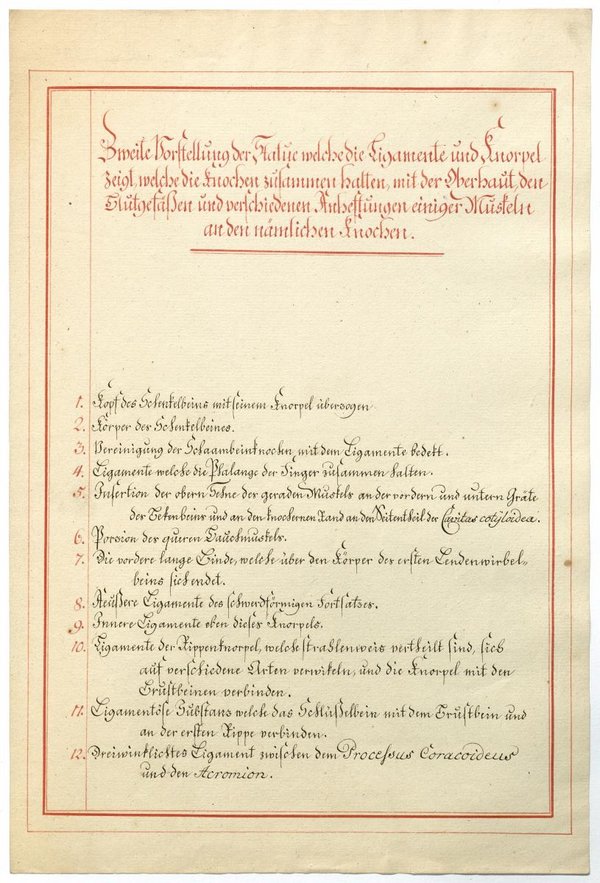 Zweite Vorstellung der Statue welche die Ligamente und Knorpel
zeigt, welche die Knochen zusammen halten, mit der Oberhaut, den
Blutgefäßen und verschiedenen Anheftungen einiger Muskeln
an den nämlichen Knochen.
1. Kopf des Schenkelbeins mit seinem Knorpel überzogen
2. Körper des Schenkelbeines.
3. Vereinigung der Schaambeinknochen mit dem Ligamente bedekt.
4. Ligamente welche die Phalange der Finger zusammen halten.
5. Insertion der obern Sehne der geraden Muskels an der vordern und untern Gräte
des Bekenbeins und an den knochernen Rand an den Seitentheil der Cavitas cotyloidea.
6. Porsion des queren Bauchmuskels.
7. Die vordere lange Binde, welche über den Körper des ersten Lendenwirbel-
beins sich endet.
8. Aeußere Ligamente des schwerdförmigen Fortsatzes.
9. Innere Ligamente eben dieses Knorpels.
10. Ligamente der Rippenknorpel, welche strahlenweis vertheilt sind, sich
auf verschiedene Arten verwikeln, und die Knorpel mit den
Brustbeinen verbinden.
11. Ligamentöse Substanz welche das Schlüßelbein mit dem Brustbein und
an der ersten Rippe verbinden.
12. Dreiwinklichtes Ligament zwischen dem Processus Coracoideus
und den Acromion.